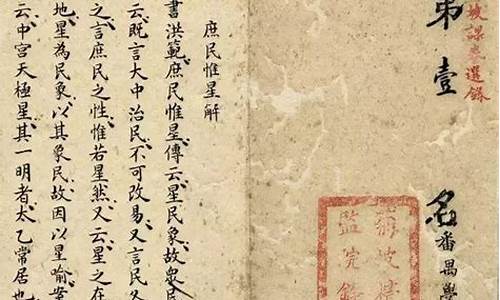 坡課卷選錄
第壹
名番禺學
庶民惟星解
書洪範庶民惟星傳云星民象故衆民
云既言大中治民不可改易又言民又
之言庶民之性惟若星然又云星之在
地星為民象以其象民故因以星喻案
云中宮天極星其一明者太乙常居也